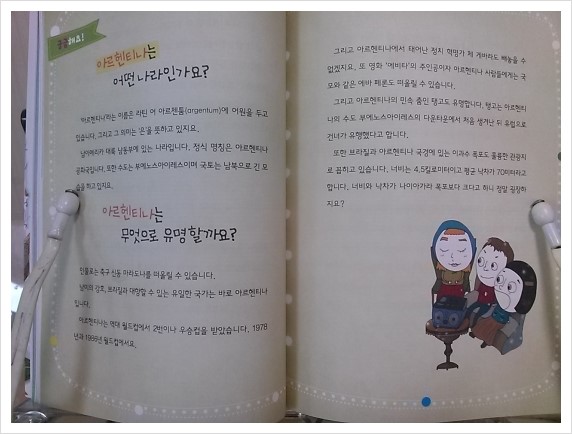 궁금해요!
아르헨티나는
어떤 나라인가요?
'아르헨티나'라는 이름은 라틴 어 아르젠툼(argentum)에 어원을 두고
있습니다. 그리고 그 의미는 '은'을 뜻하고 있지요.
남아메리카 대륙 남동부에 있는 나라입니다. 정식 명칭은 아르헨티나
공화국입니다. 또한 수도는 부에노스아이레스이며 국토는 남북으로 긴 모
습을 하고 있지요.
아르헨티나는
무엇으로 유명할까요?
인물로는 축구 신동 마라도나를 떠올릴 수 있습니다.
남미의 강호, 브라질과 대항할 수 있는 유일한 국가는 바로 아르헨티나
입니다.
아르헨티나는 역대 월드컵에서 2번이나 우승컵을 받았습니다. 1978
년과 1986년 월드컵에서요.
그리고 아르헨티나에서 태어난 정치 혁명가 체 게바라도 빼놓을 수
없겠지요. 또 영화 '에비타'의 주인공이자 아르헨티나 사람들에게는 국
모와 같은 에바 페론도 떠올릴 수 있습니다.
그리고 아르헨티나의 민속 춤인 탱고도 유명합니다. 탱고는 아르헨티
나의 수도 부에노스아이레스의 다운타운에서 처음 생겨난 뒤 유럽으로
건너가 유행했다고 합니다.
또한 브라질과 아르헨티나 국경에 있는 이과수 폭포도 훌륭한 관광지
로 꼽히고 있습니다. 너비는 4.5킬로미터이고 평균 낙차가 70미터라고
합니다. 너비와 낙차가 나이아가라 폭포보다 크다고 하니 정말 굉장하
지요?